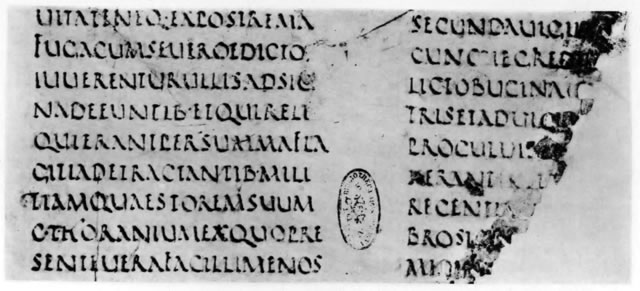 UITATENEQ·EXPOSTREMA
FUGACUMSEUEROEDICTO
IUUERENTURULLISADSIG
NADEEUNTIB·ETQUIRELI
QUIERANTPERSUMMAFLA
GITIADETRACTANTIB·MILI
TIAMQUAESTOREMSUUM
C·THORANIUMEXQUOPRE
SENTEUERAFACILLIMENOS
SECUNDAUIGILI
CUNCTIEGREDI
LICTOBUCINAT
TRISETADUIG
PROCULUIS
PERANT
RECENTIA
BROS